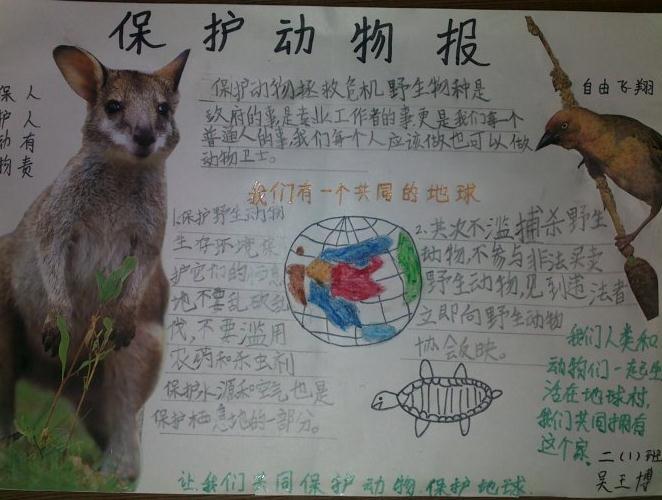 保护动物报
保护动物
人人有责
自由飞翔
保护动物拯救危机野生物种是
政府的事是专业工作者的事更是我们每一个
普通人的事,我们每个人应该做也可以做
动物卫士。
我们有一个共同的地球
1.保护野生动物
生存环境保
护它们的栖息
地不要乱砍乱
伐,不要滥用
农药和杀虫剂
保护水源和空气也是
保护栖息地的一部分。
2.共次不滥捕杀野生
动物,不参与非法买卖
野生动物,见到违法者
立即向野生动物
协会反映。
我们人类和
动物们一起生
活在地球村,
我们共同拥有
这个家
二(1)班
吴玉博
让我们共同保护动物保护地球